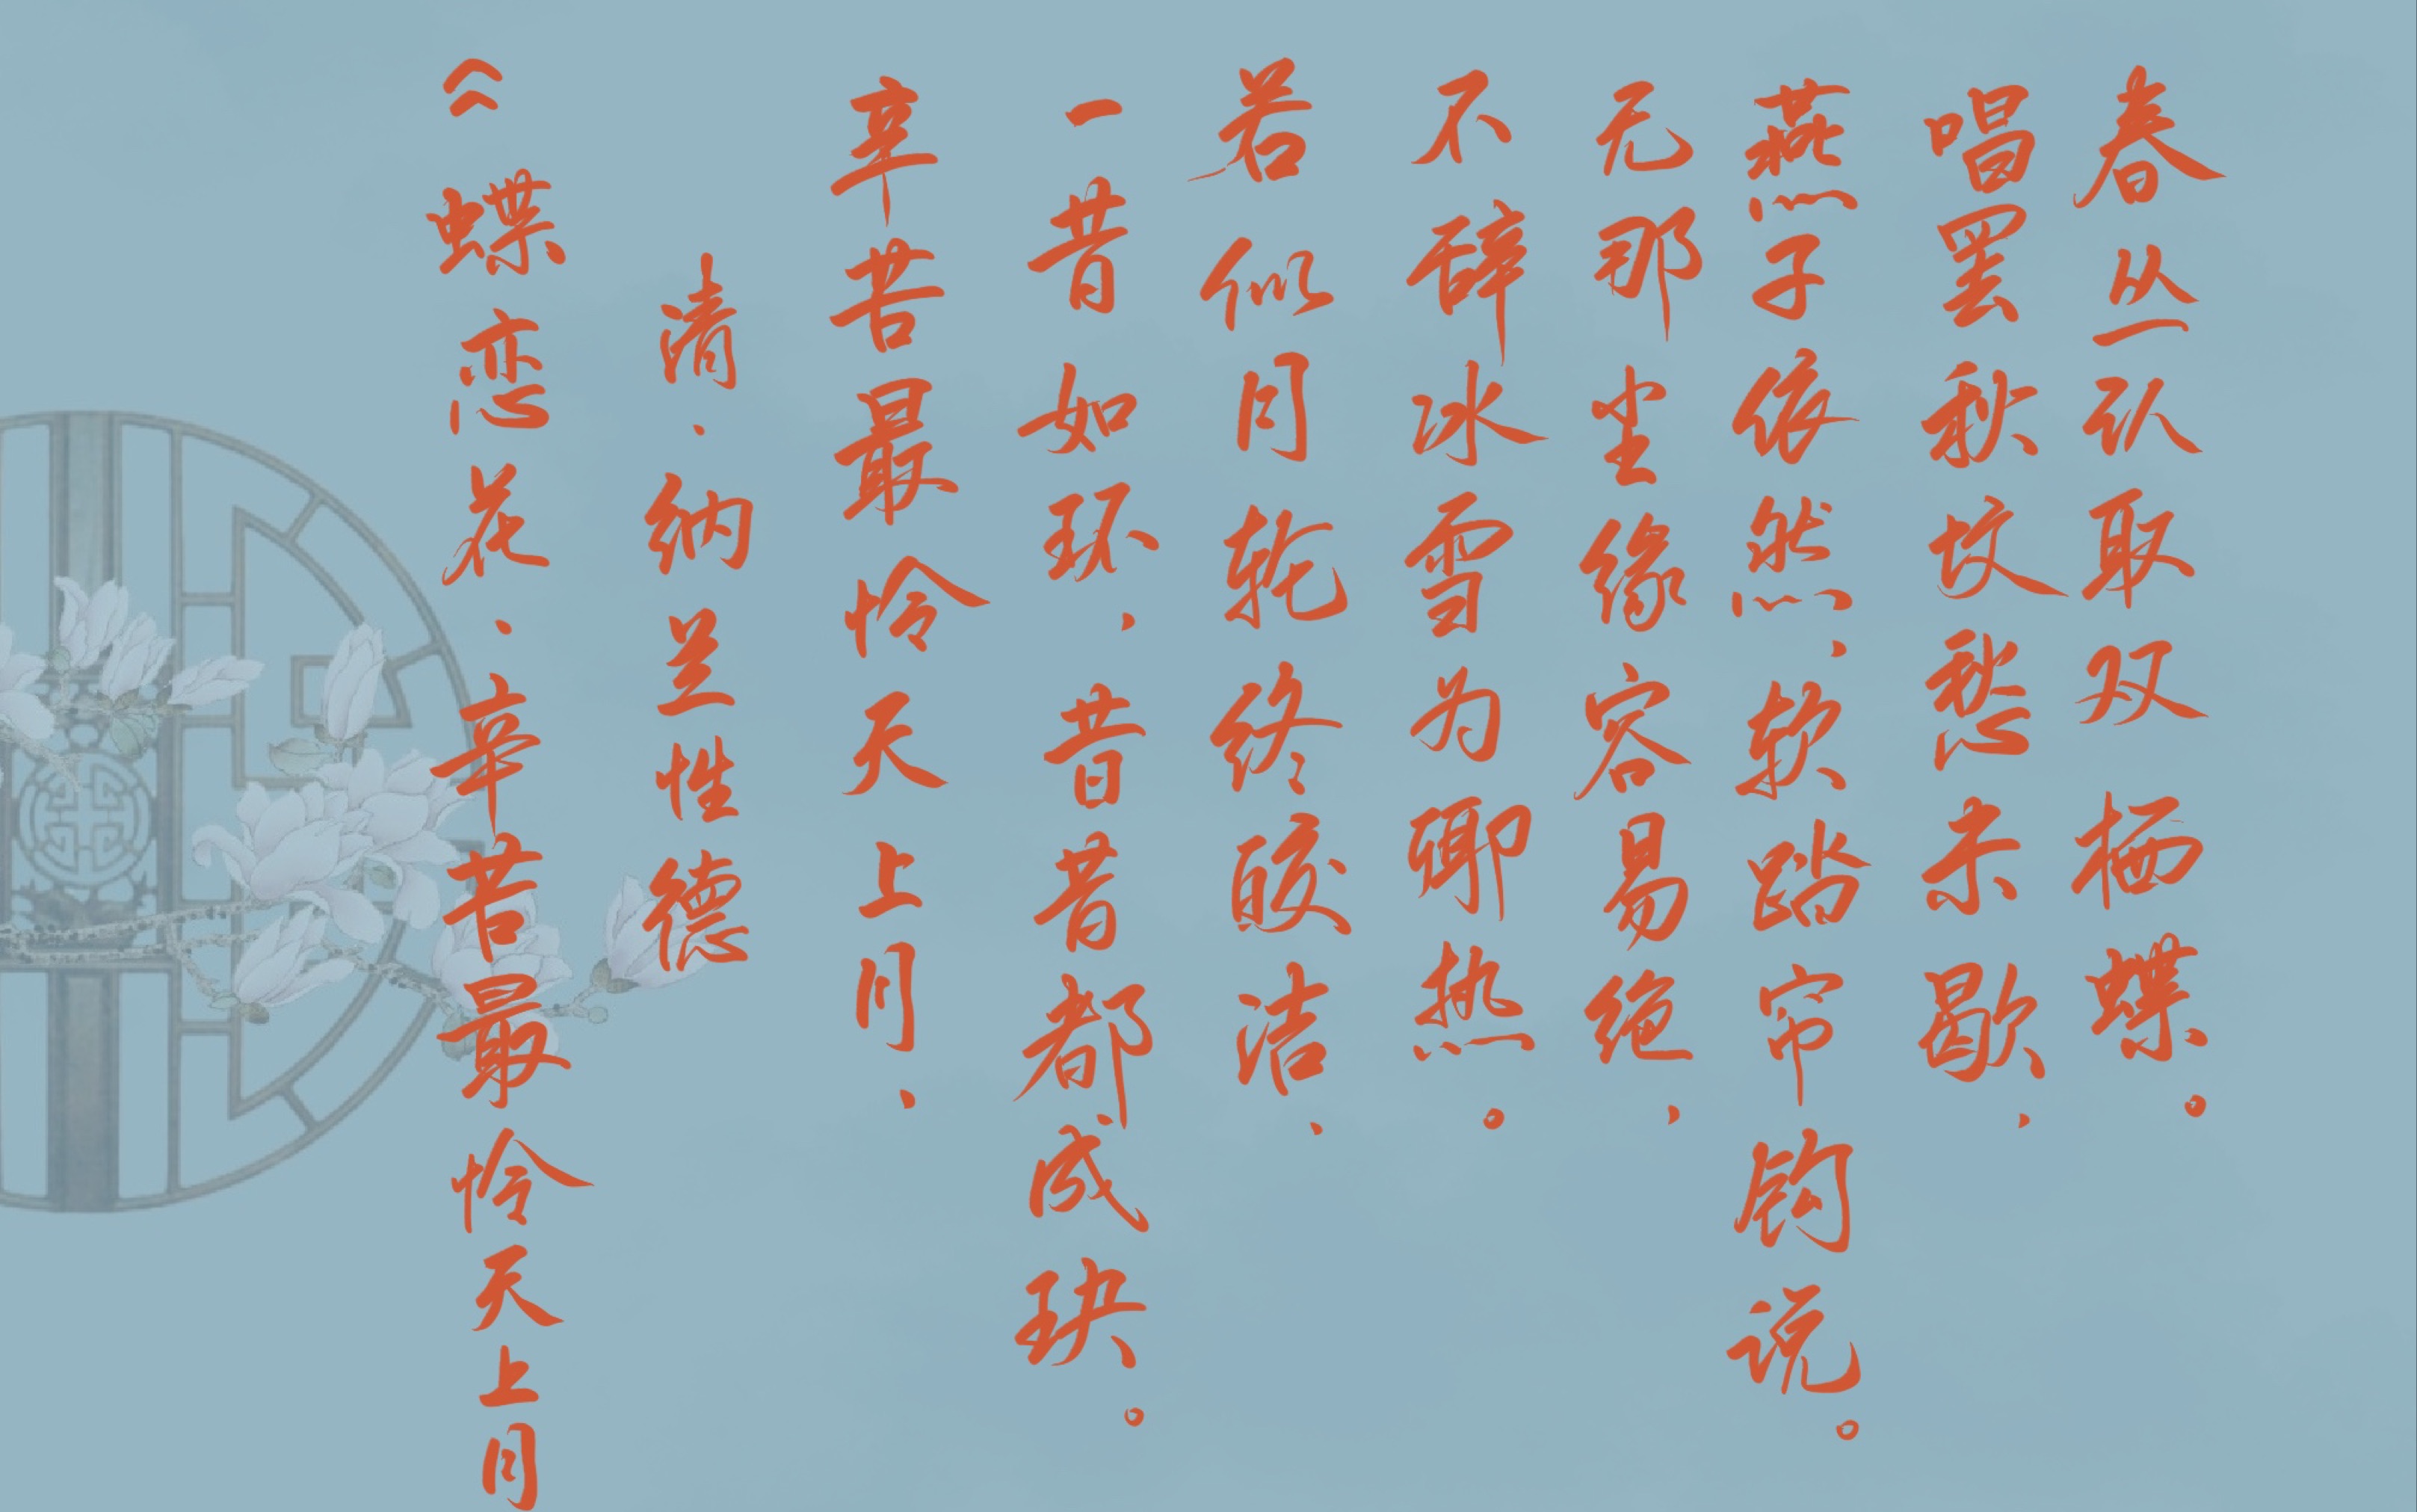 《蝶恋花·辛苦最怜天上月
清·纳兰性德
辛苦最怜天上月，
一昔如环，昔昔都成玦。
若似月轮终皎洁，
不辞冰雪为卿热。
无那尘缘容易绝，
燕子依然，软踏帘钩说。
唱罢秋坟愁未歇，
春丛认取双栖蝶。